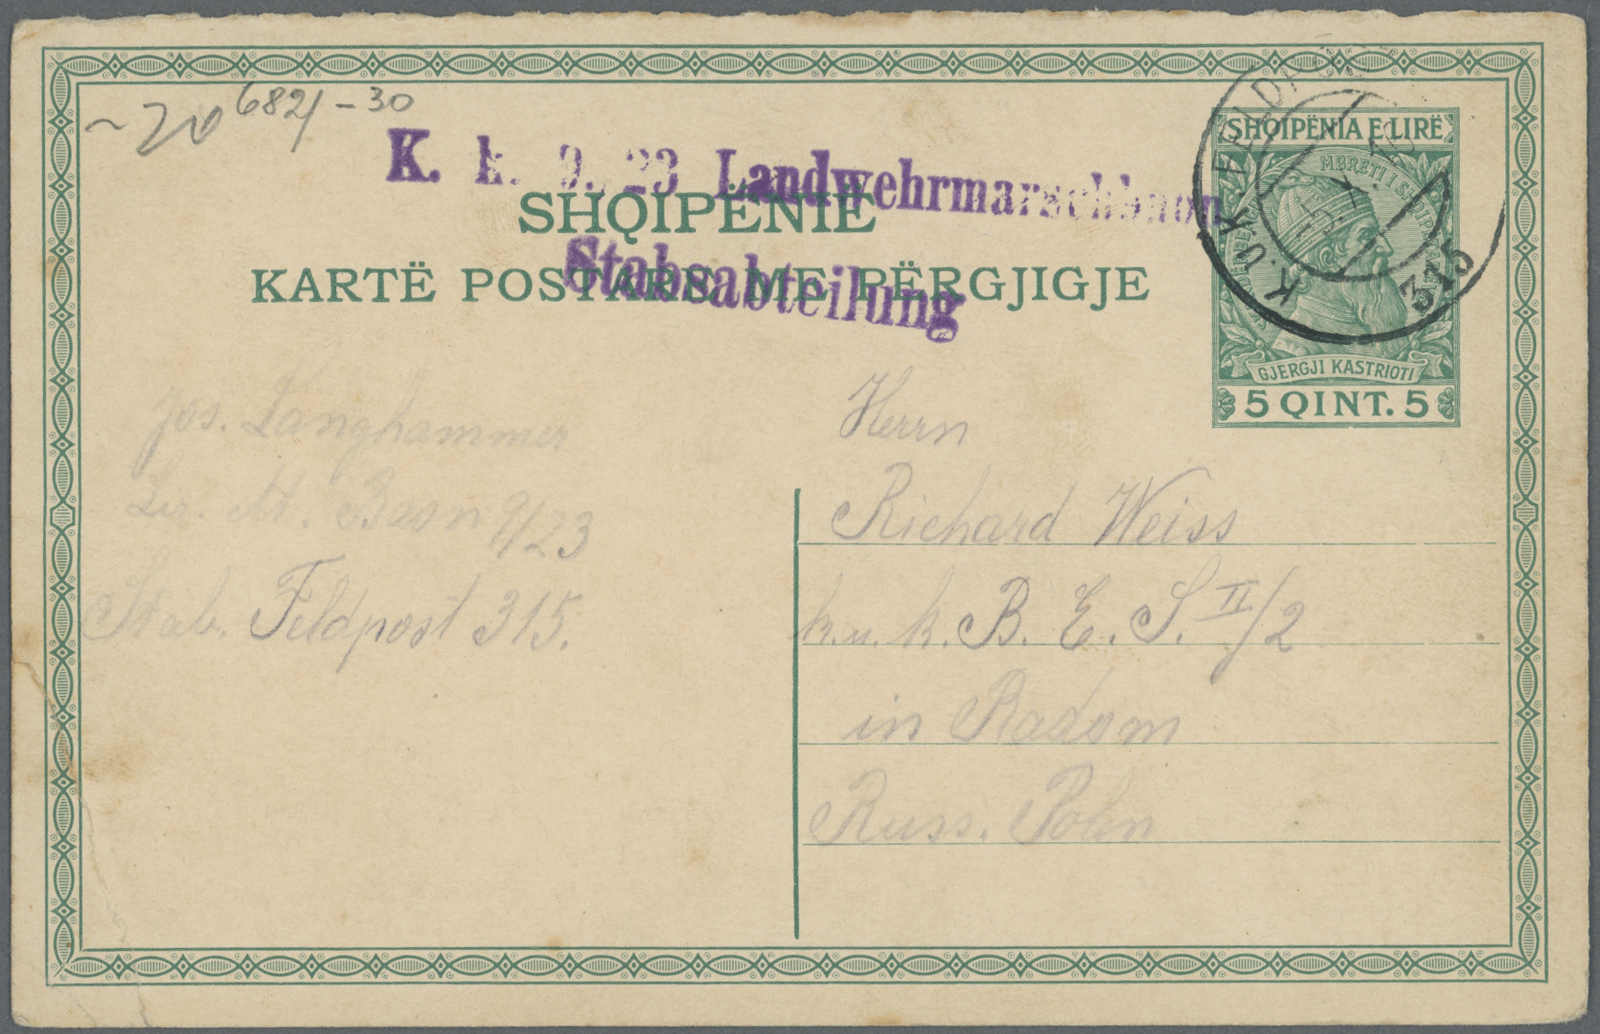 682/-30
K. k. 9. 23 Landwehrmarschbaon
Stabsabteilung
SHQIPËNIE
KARTË POSTARE ME PËRGJIGJE
SHQIPËNIA E LIRË
MBRETI I
GJERGJI KASTRIOTI
5 QINT. 5
K.U.K. FELDPOSTAMT
315
Jos. Langhammer
Baon 9/23
Stab. Feldpost 315.
Herrn
Richard Weiss
k. u. k. B. E. S. II/2
in Radom
Russ. Polen